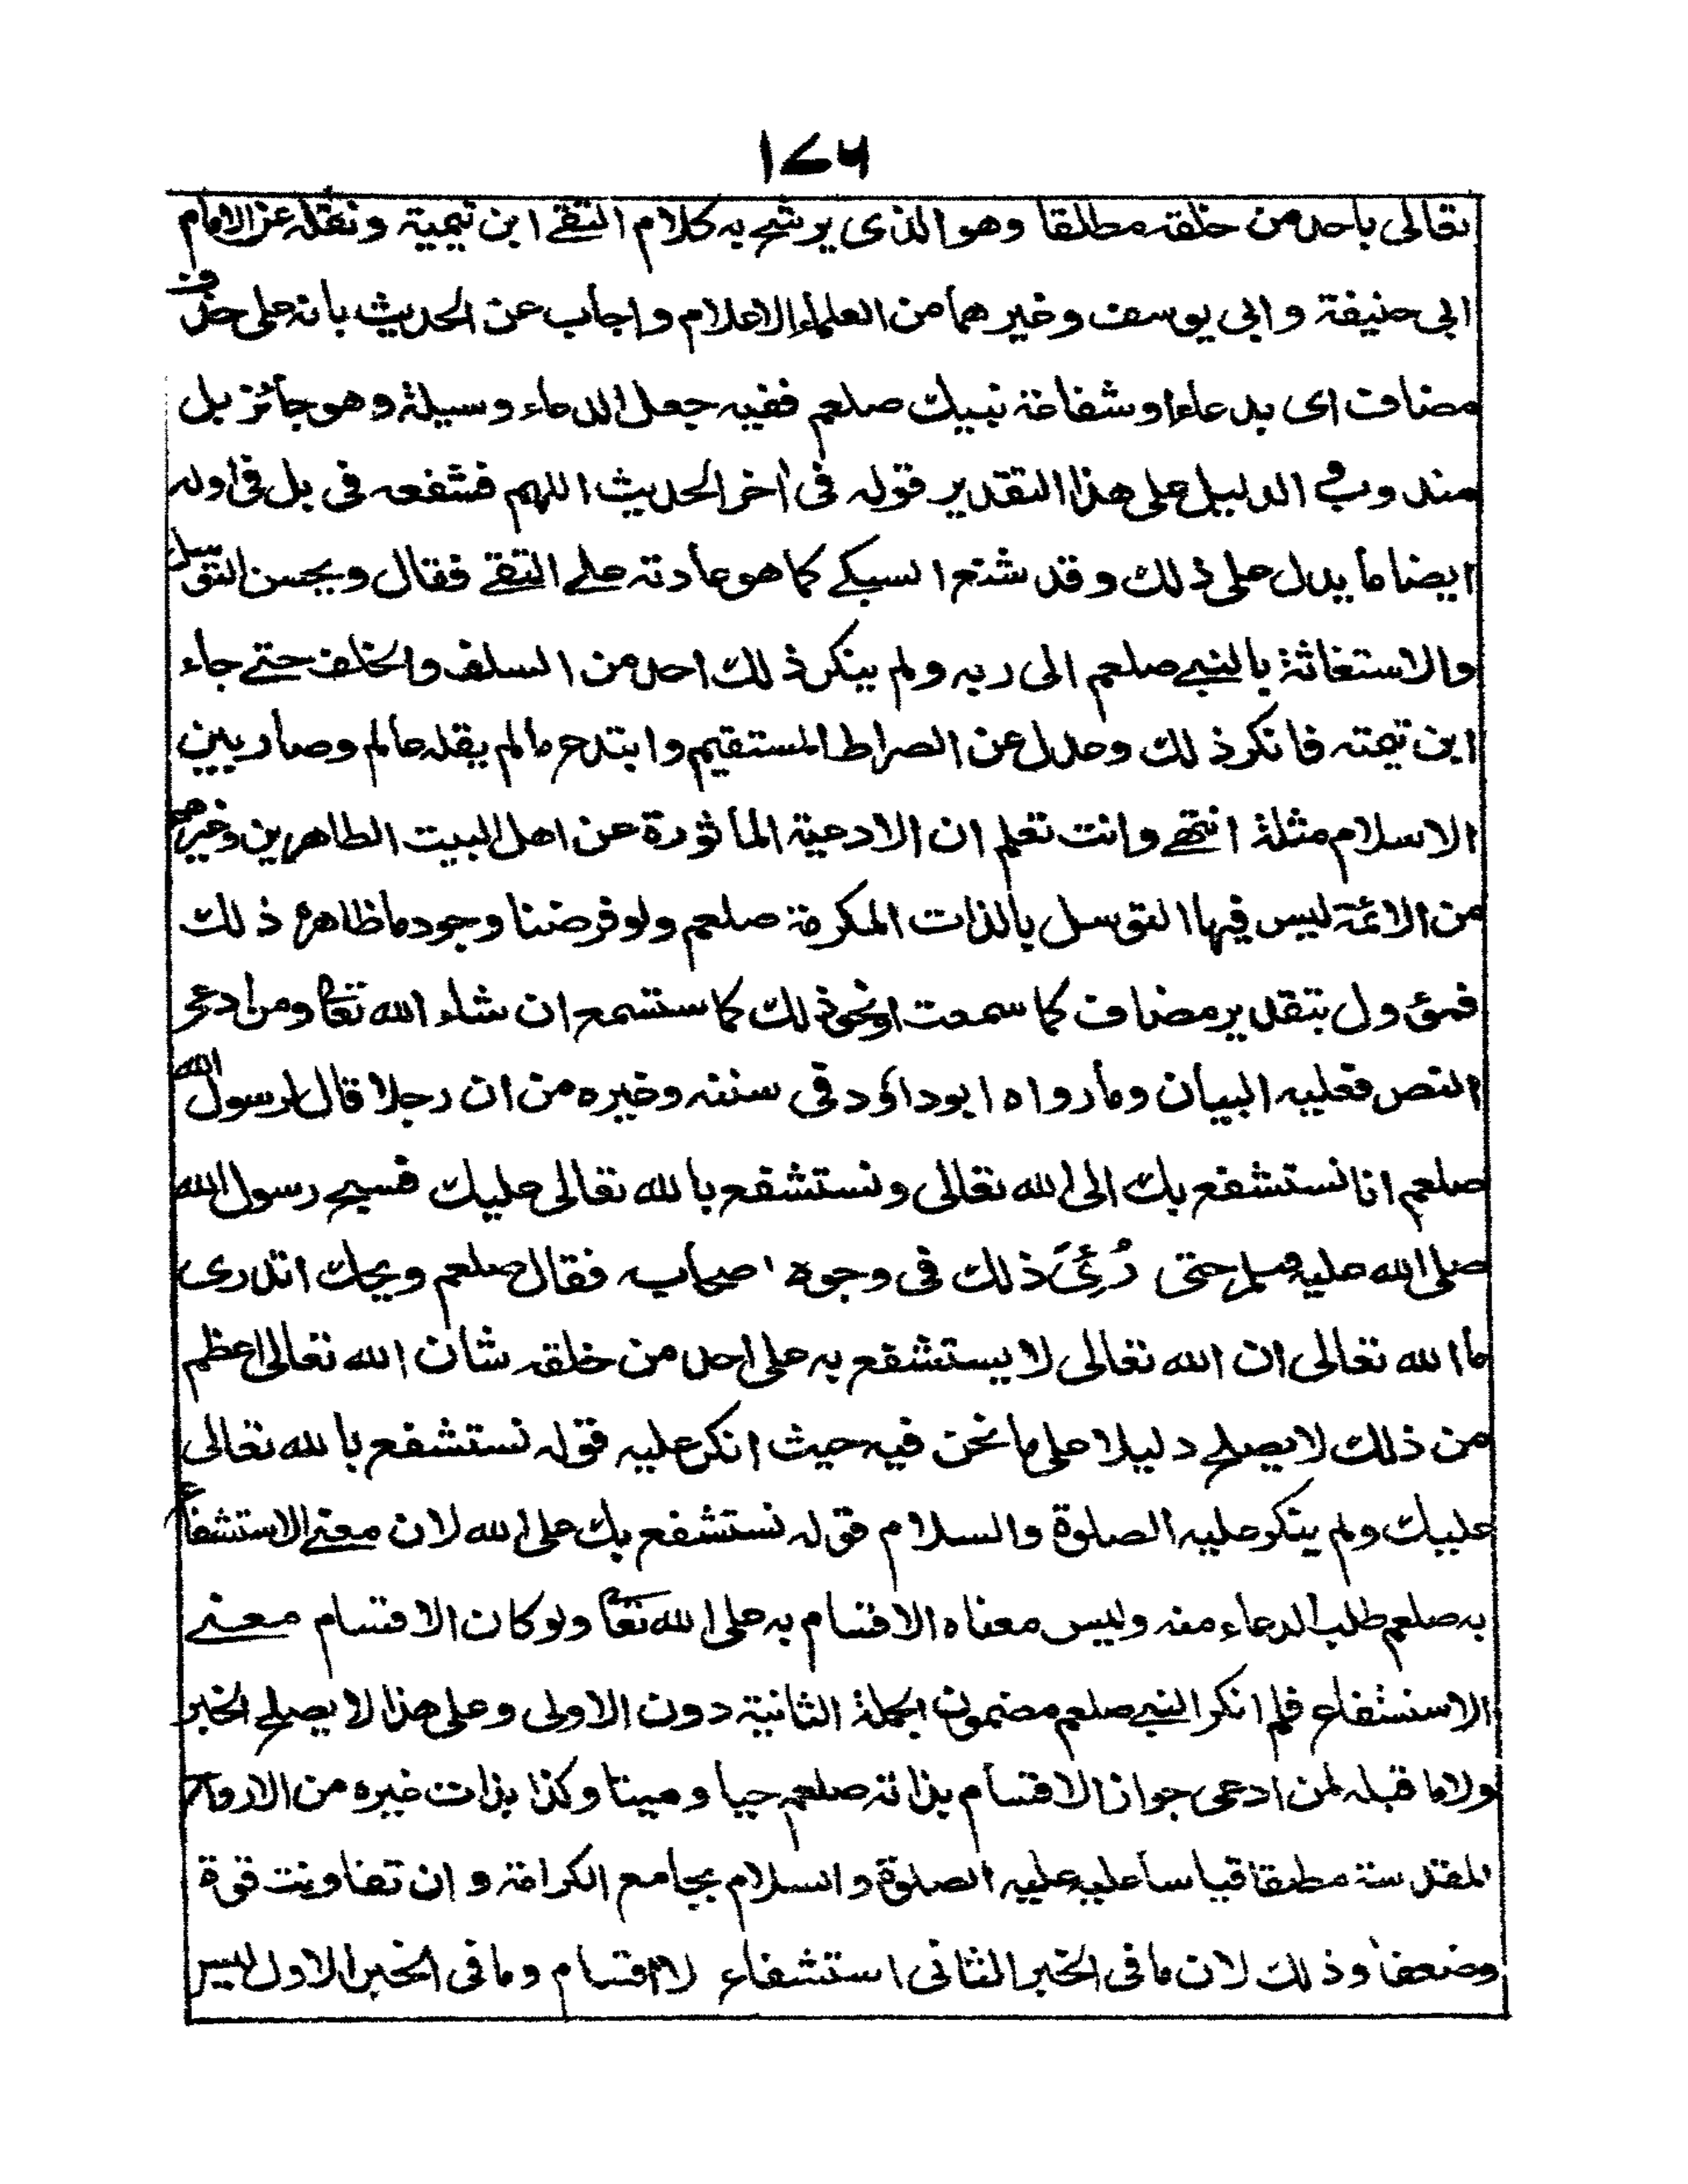 ١٧٦
تعالى باحد من خلقه مطلقا وهو الذى يرشح به كلام التقے ابن تيمية ونقله عن الامام
ابى حنيفة وابى يوسف وغيرهما من العلماء الاعلام واجاب عن الحديث بانه على حذف
مضاف اى بدعاء اوشفاعة نبيك صلعم ففيه جعل الدعاء وسيلة وهو جائز بل
مندوب والدليل على هذا التقدير قوله فى اخر الحديث اللهم فشفعه فى بل فى اوله
ايضا ما يدل على ذلك وقد شنع السبكے كما هو عادته علے التقے فقال ويحسن التوسل
والاستغاثة بالنبے صلعم الى ربه ولم ينكر ذلك احد من السلف والخلف حتے جاء
ابن تيمته فانكر ذلك وعدل عن الصراط المستقيم وابتدع مالم يقله عالم وصار بين
الاسلام مثلة انتهے وانت تعلم ان الادعية المأثورة عن اهل البيت الطاهرين وغيرهم
من الائمة ليس فيها التوسل بالذات المكرمة صلعم ولو فرضنا وجود ما ظاهره ذلك
فمؤول بتقدير مضاف كما سمعت اونحو ذلك كما ستسمع ان شاء الله تعا ومن ادعى
النص فعليه البيان وما رواه ابوداؤد فى سننه وغيره من ان رجلا قال لرسول الله
صلعم انا نستشفع بك الى الله تعالى ونستشفع بالله تعالى عليك فسبح رسول الله
صلى الله عليه وسلم حتى رُئِىَ ذلك فى وجوه اصحابه فقال صلعم ويحك اتدرى
ما الله تعالى ان الله تعالى لا يستشفع به على احد من خلقه شان الله تعالى اعظم
من ذلك لا يصلح دليلا على ما نحن فيه حيث انكر عليه قوله نستشفع بالله تعالى
عليك ولم ينكر عليه الصلوة والسلام قوله نستشفع بك على الله لان معنے الاستشفاع
به صلعم طلب الدعاء منه وليس معناه الاقسام به على الله تعا ولو كان الاقسام معنے
الاستشفاع فلم انكر النبے صلعم مضمون الجملة الثانية دون الاولى وعلى هذا لا يصلح الخبر
ولا ما قبله لمن ادعى جواز الاقسام بذاته صلعم حيا وميتا وكذا بذات غيره من الارواح
المقدسة مطلقا قياسا عليه عليه الصلوة والسلام بجامع الكرامة وان تفاوتت قوة
وضعفا وذلك لان ما فى الخبر الثانى استشفاع لا اقسام وما فى الخبر الاول ليس